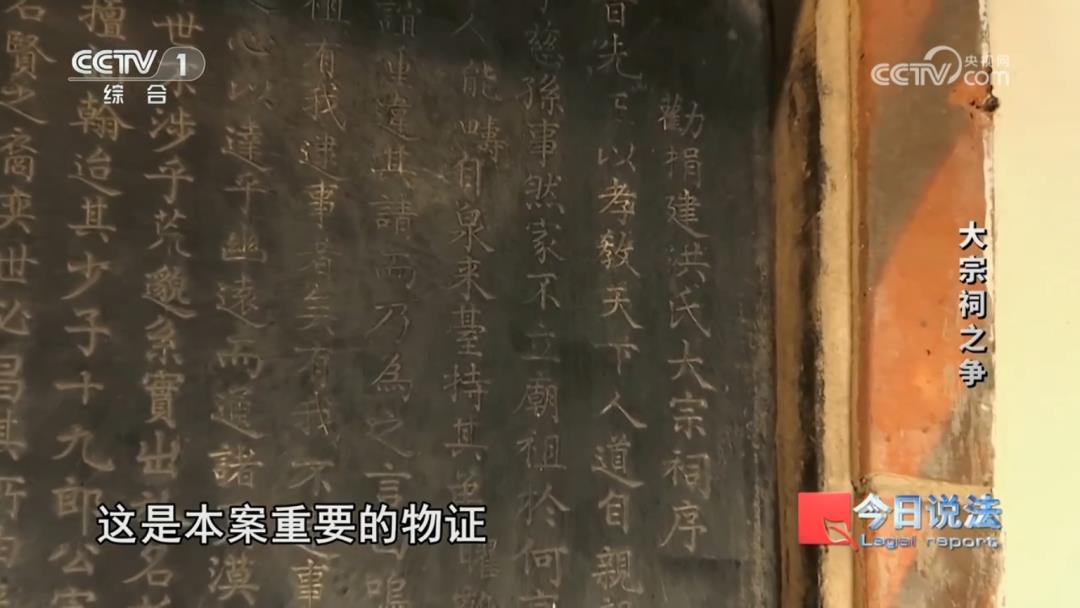 CCTV 1
综合
CCTV 央视网
com
勸捐建洪氏大宗祠序
昔先王以孝教天下人道自親
慈孫事然家不立廟祖於何
人能疇自泉來臺持其
請重違其請而乃為之言曰嗚
有我建事者矣有我不
心以達乎幽遠而通諸漠
世系涉乎荒邈系實出名
擅翰迨其少子十九郎公
名賢之裔奕世必昌其所
大宗祠之争
这是本案重要的物证
今日说法
Legal report